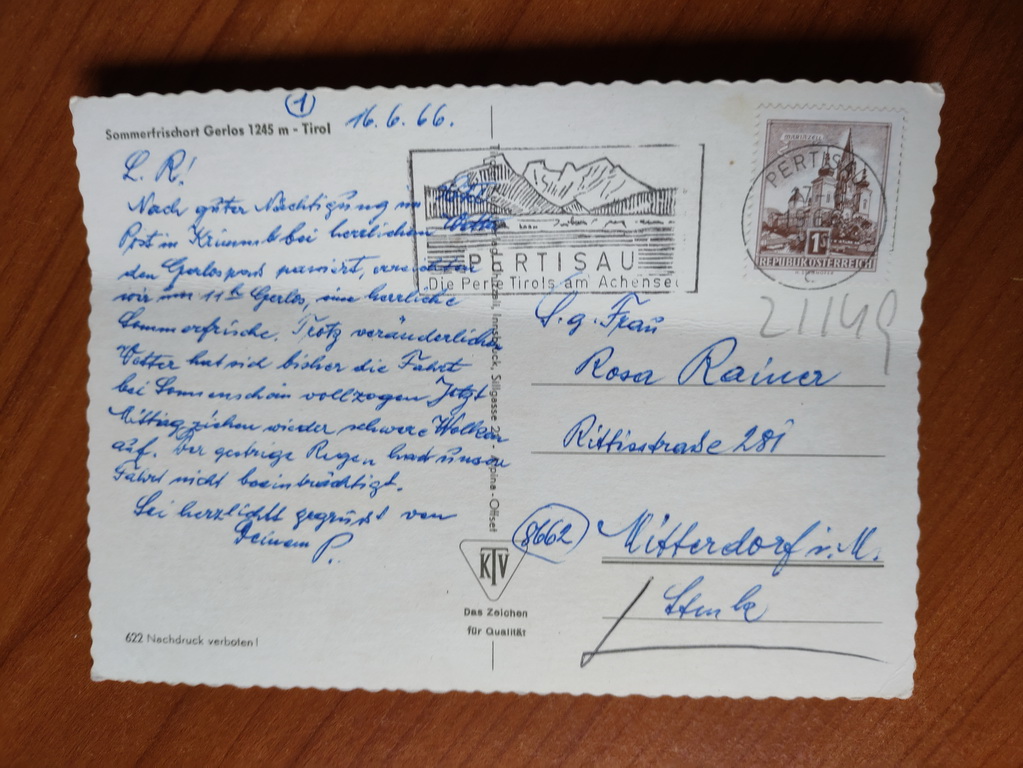 Sommerfrischort Gerlos 1245 m - Tirol
① 16. 6. 66.
L. R!
Nach guter Nächtigung im Hotel
Post in Krimml bei herrlichem Wetter
den Gerlospass passiert, erreichten
wir um 11h Gerlos, eine herrliche
Sommerfrische. Trotz veränderlichem
Wetter hat sich bisher die Fahrt
bei Sonnenschein vollzogen. Jetzt
Mittag ziehen wieder schwere Wolken
auf. Der gestrige Regen hat unsere
Fahrt nicht beeinträchtigt.
Sei herzlichst gegrüsst von
Deinem P.
622 Nachdruck verboten!
Innsbruck, Sillgasse
Alpina - Offset
KTV
Das Zeichen
für Qualität
PERTISAU
Die Perle Tirols am Achensee
MARIAZELL
1S
REPUBLIK ÖSTERREICH
PERTISAU
21149
S. g. Frau
Rosa Rainer
Rittisstraße 281
8662 Mitterdorf i. M.
Stmk